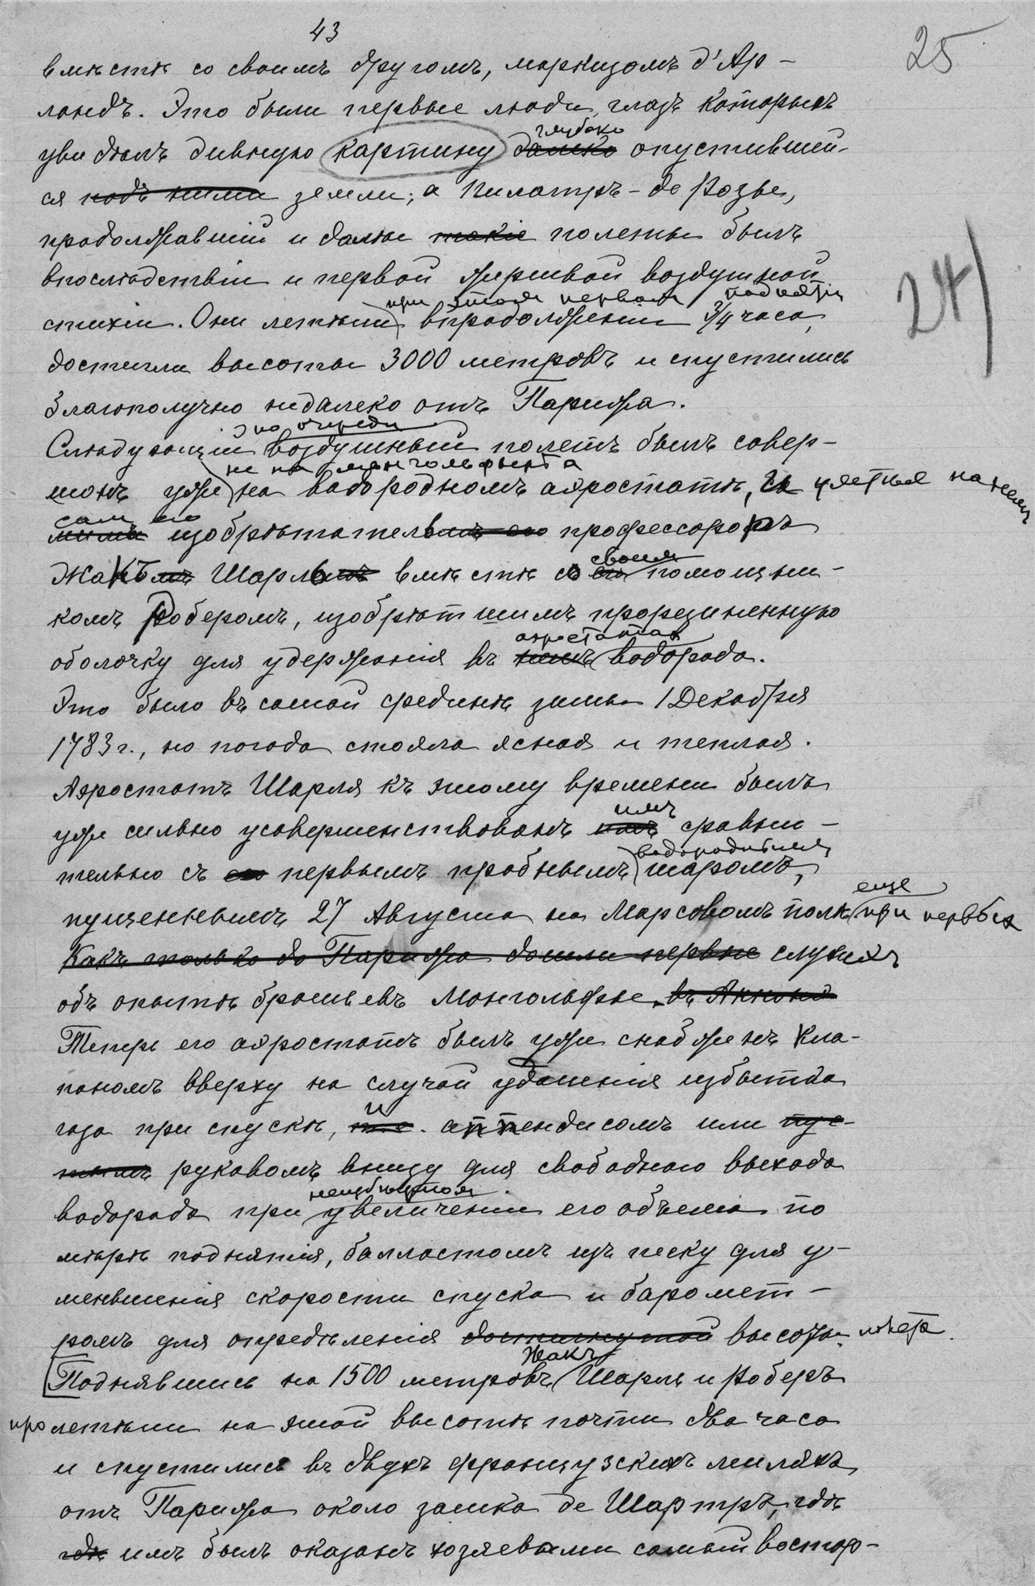 43
25
вмѣстѣ со своимъ другомъ, маркизомъ д'Ар-
ландъ. Это были первые люди, глазъ которыхъ
глубоко
увидѣлъ дивную картину далеко опустившей-
ся подъ ними земли; а Пилатръ-де Розье,
продолжавшій и далѣе такіе полеты былъ
впослѣдствіи и первой жертвой воздушной
24)
при этомъ первомъ поднятіи
стихіи. Они летѣли впродолженіи 3/4 часа,
достигли высоты 3000 метровъ и спустились
благополучно недалеко отъ Парижа.
по очереди
Слѣдующій воздушный полетъ былъ совер-
не на монгольфьерѣ а
шонъ уже на водородномъ аэростатѣ, и улетѣлъ на немъ
самъ его
изобрѣтатель его профессоръ
своим
Жакъ Шарль вмѣстѣ со помощни-
комъ Роберомъ, изобрѣтшимъ прорезиненную
аэростатах
оболочку для удержанія въ немъ водорода.
Это было въ самой срединѣ зимы 1 Декабря
1783 г., но погода стояла ясная и теплая.
Аэростатъ Шарля къ этому времени былъ
имъ
уже сильно усовершенствованъ имъ сравни-
водороднымъ
тельно съ его первымъ пробнымъ шаромъ,
еще
пущеннымъ 27 Августа на Марсовомъ полѣ при первыхъ
Какъ только до Парижа дошли первые слухахъ
объ опытѣ братьевъ Монгольфье въ Аннонэ
Теперь его аэростатъ былъ уже снабженъ кла-
паномъ вверху на случай удаленія избытка
и
газа при спускѣ, аппендисомъ или пус-
тымъ рукавомъ внизу для свободнаго выхода
неизбѣжномъ
водорода при увеличеніи его объема по
мѣрѣ поднятія, балластомъ изъ песку для у-
меньшенія скорости спуска и баромет-
ромъ для опредѣленія достигнутой высоты полета.
Жакъ
Поднявшись на 1500 метровъ Шарль и Роберъ
пролетѣли на этой высотѣ почти два часа
и спустились въ двухъ французскихъ миляхъ
отъ Парижа около замка де Шартръ, гдѣ
гдѣ имъ былъ оказанъ хозяевами самый востор-